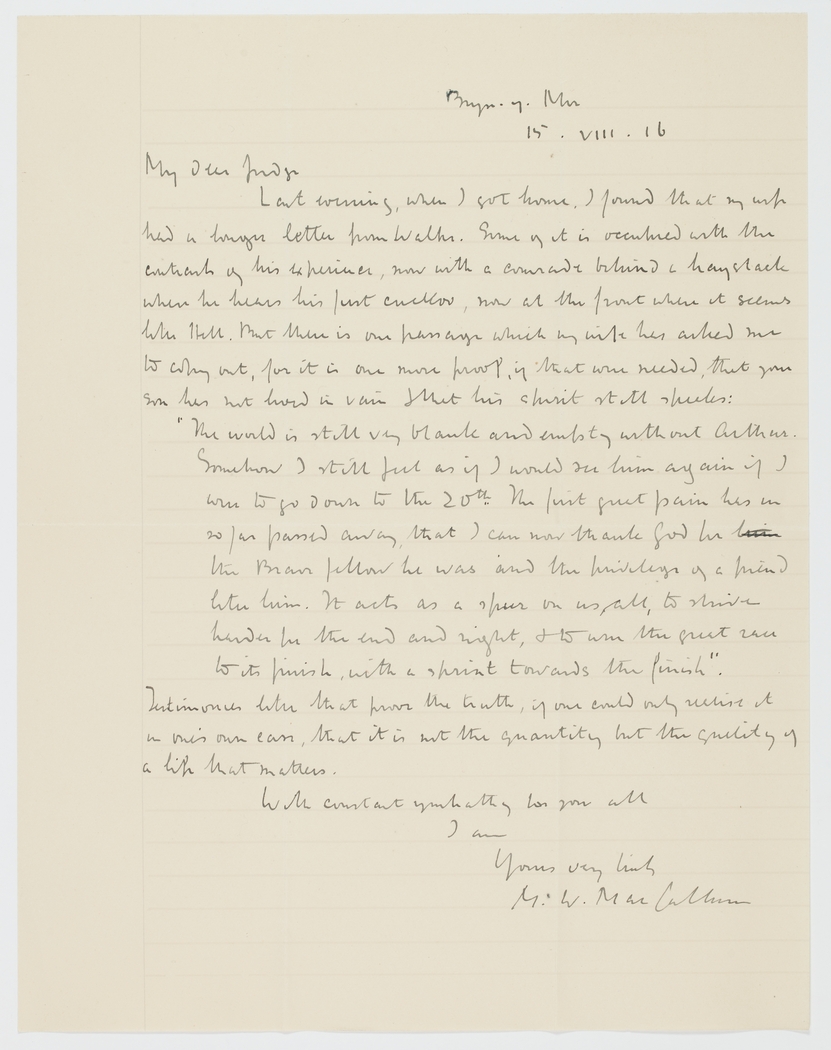 Bryn-y-Mor
15. VIII. 16
My Dear Judge
Last evening, when I got home, I found that my wife
had a longer letter from Walter. Some of it is occupied with the
contrasts of his experience, now with a comrade behind a haystack
where he hears his first cuckoo, now at the front where it seems
like Hell. But there is one passage which my wife has asked me
to copy out, for it is one more proof, if that were needed, that your
son has not lived in vain & that his spirit still speaks:
"The world is still very blank and empty without Arthur.
Somehow I still feel as if I would see him again if I
were to go down to the 20th. The first great pain has in
so far passed away, that I can now thank God for him
the Brave fellow he was and the privilege of a friend
like him. It acts as a spur on us, all, to strive
harder for the end and right, & to run the great race
to its finish, with a sprint towards the finish".
Testimonies like that prove the truth, if one could only realise it
in one's own case, that it is not the quantity but the quality of
a life that matters.
With constant sympathy for you all
I am
Yours very truly
M. W. MacCallum